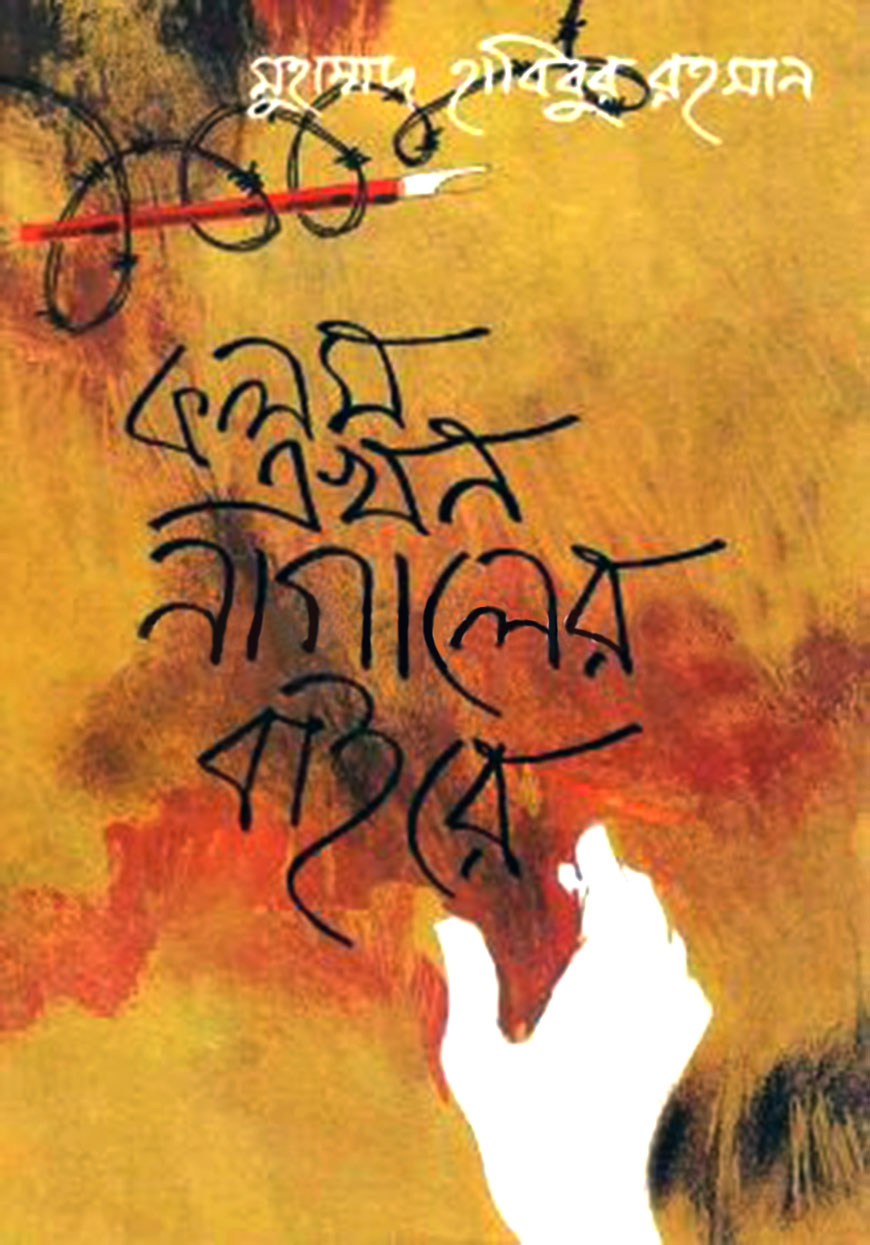 মুহাম্মদ হাবিবুর রহমান
কলম
এখন
নাগালের
বাইরে